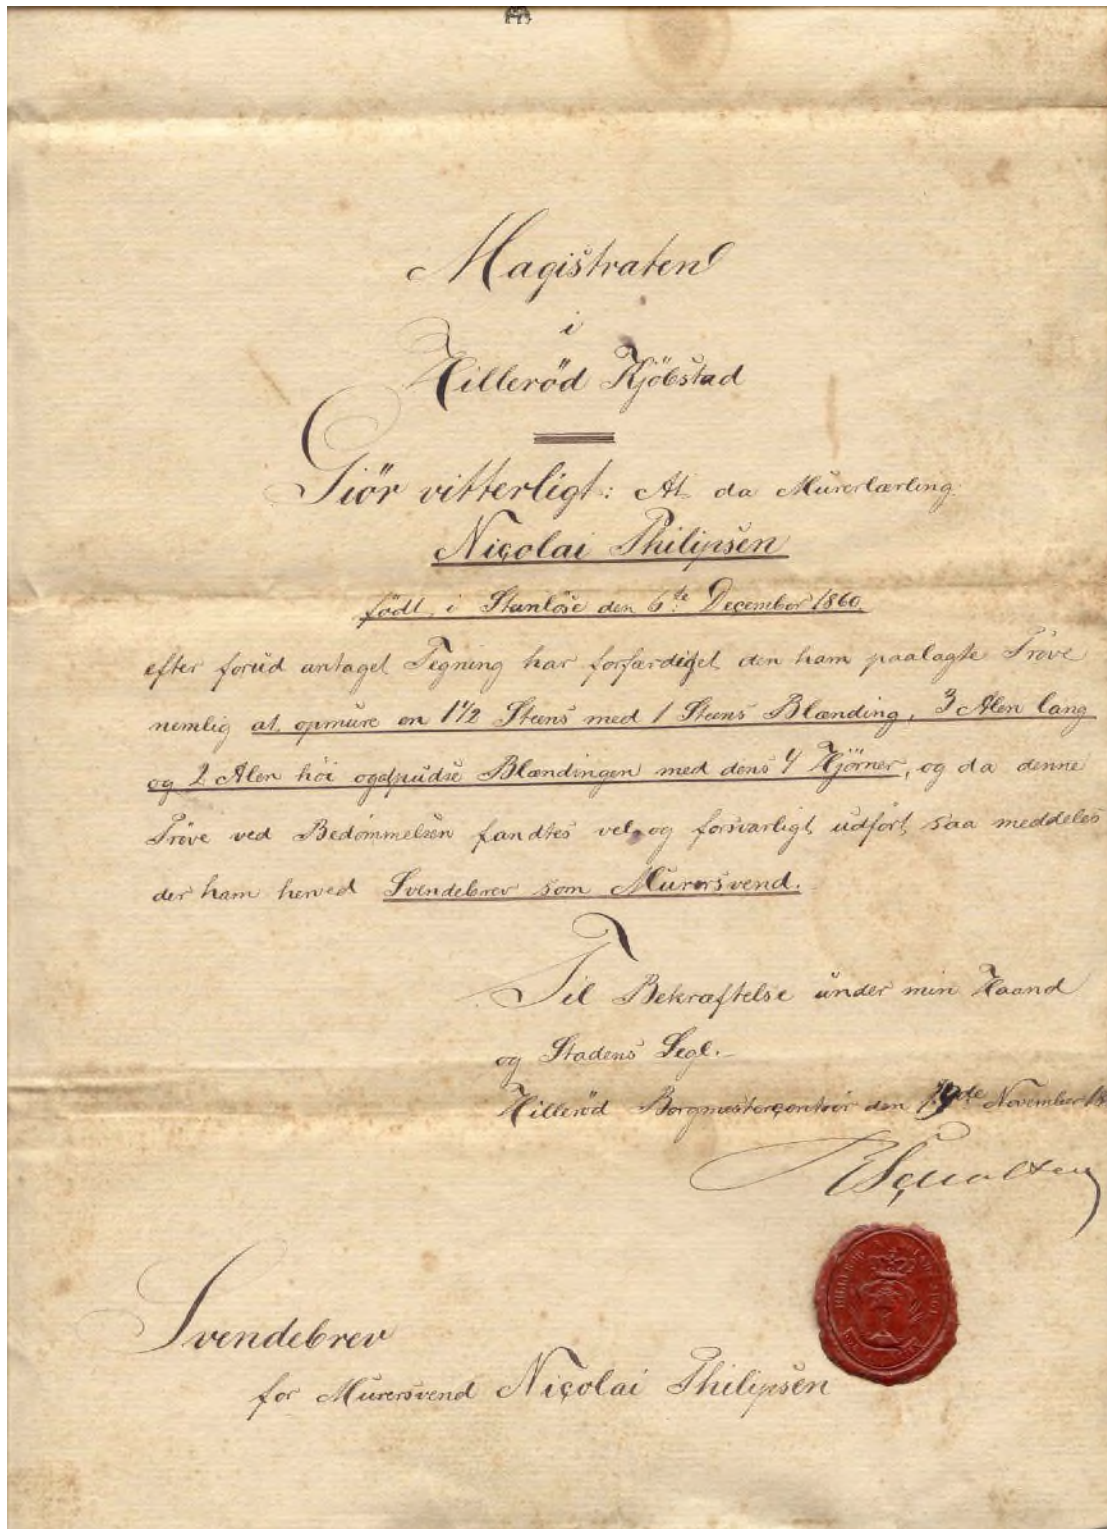 Magistraten
i
Hilleröd Kjöbstad
Giör vitterligt: At da Murerlærling
Nicolai Philipsen
född i Stenlöse den 6te December 1860
efter forud antaget Tegning har forfærdiget den ham paalagte Pröve
nemlig at opmure en 1 1/2 Steens med 1 Steens Blænding, 3 Alen lang
og 2 Alen höi og pudse Blændingen med dens 4 Hjörner, og da denne
Pröve ved Bedömmelsen fandtes vel og forsvarligt udfört saa meddeles
der ham herved Svendebrev som Murersvend.
Til Bekræftelse under min Haand
og Stadens Segl.
Hilleröd Borgmestercontoir den November 18
Svendebrev
for Murersvend Nicolai Philipsen